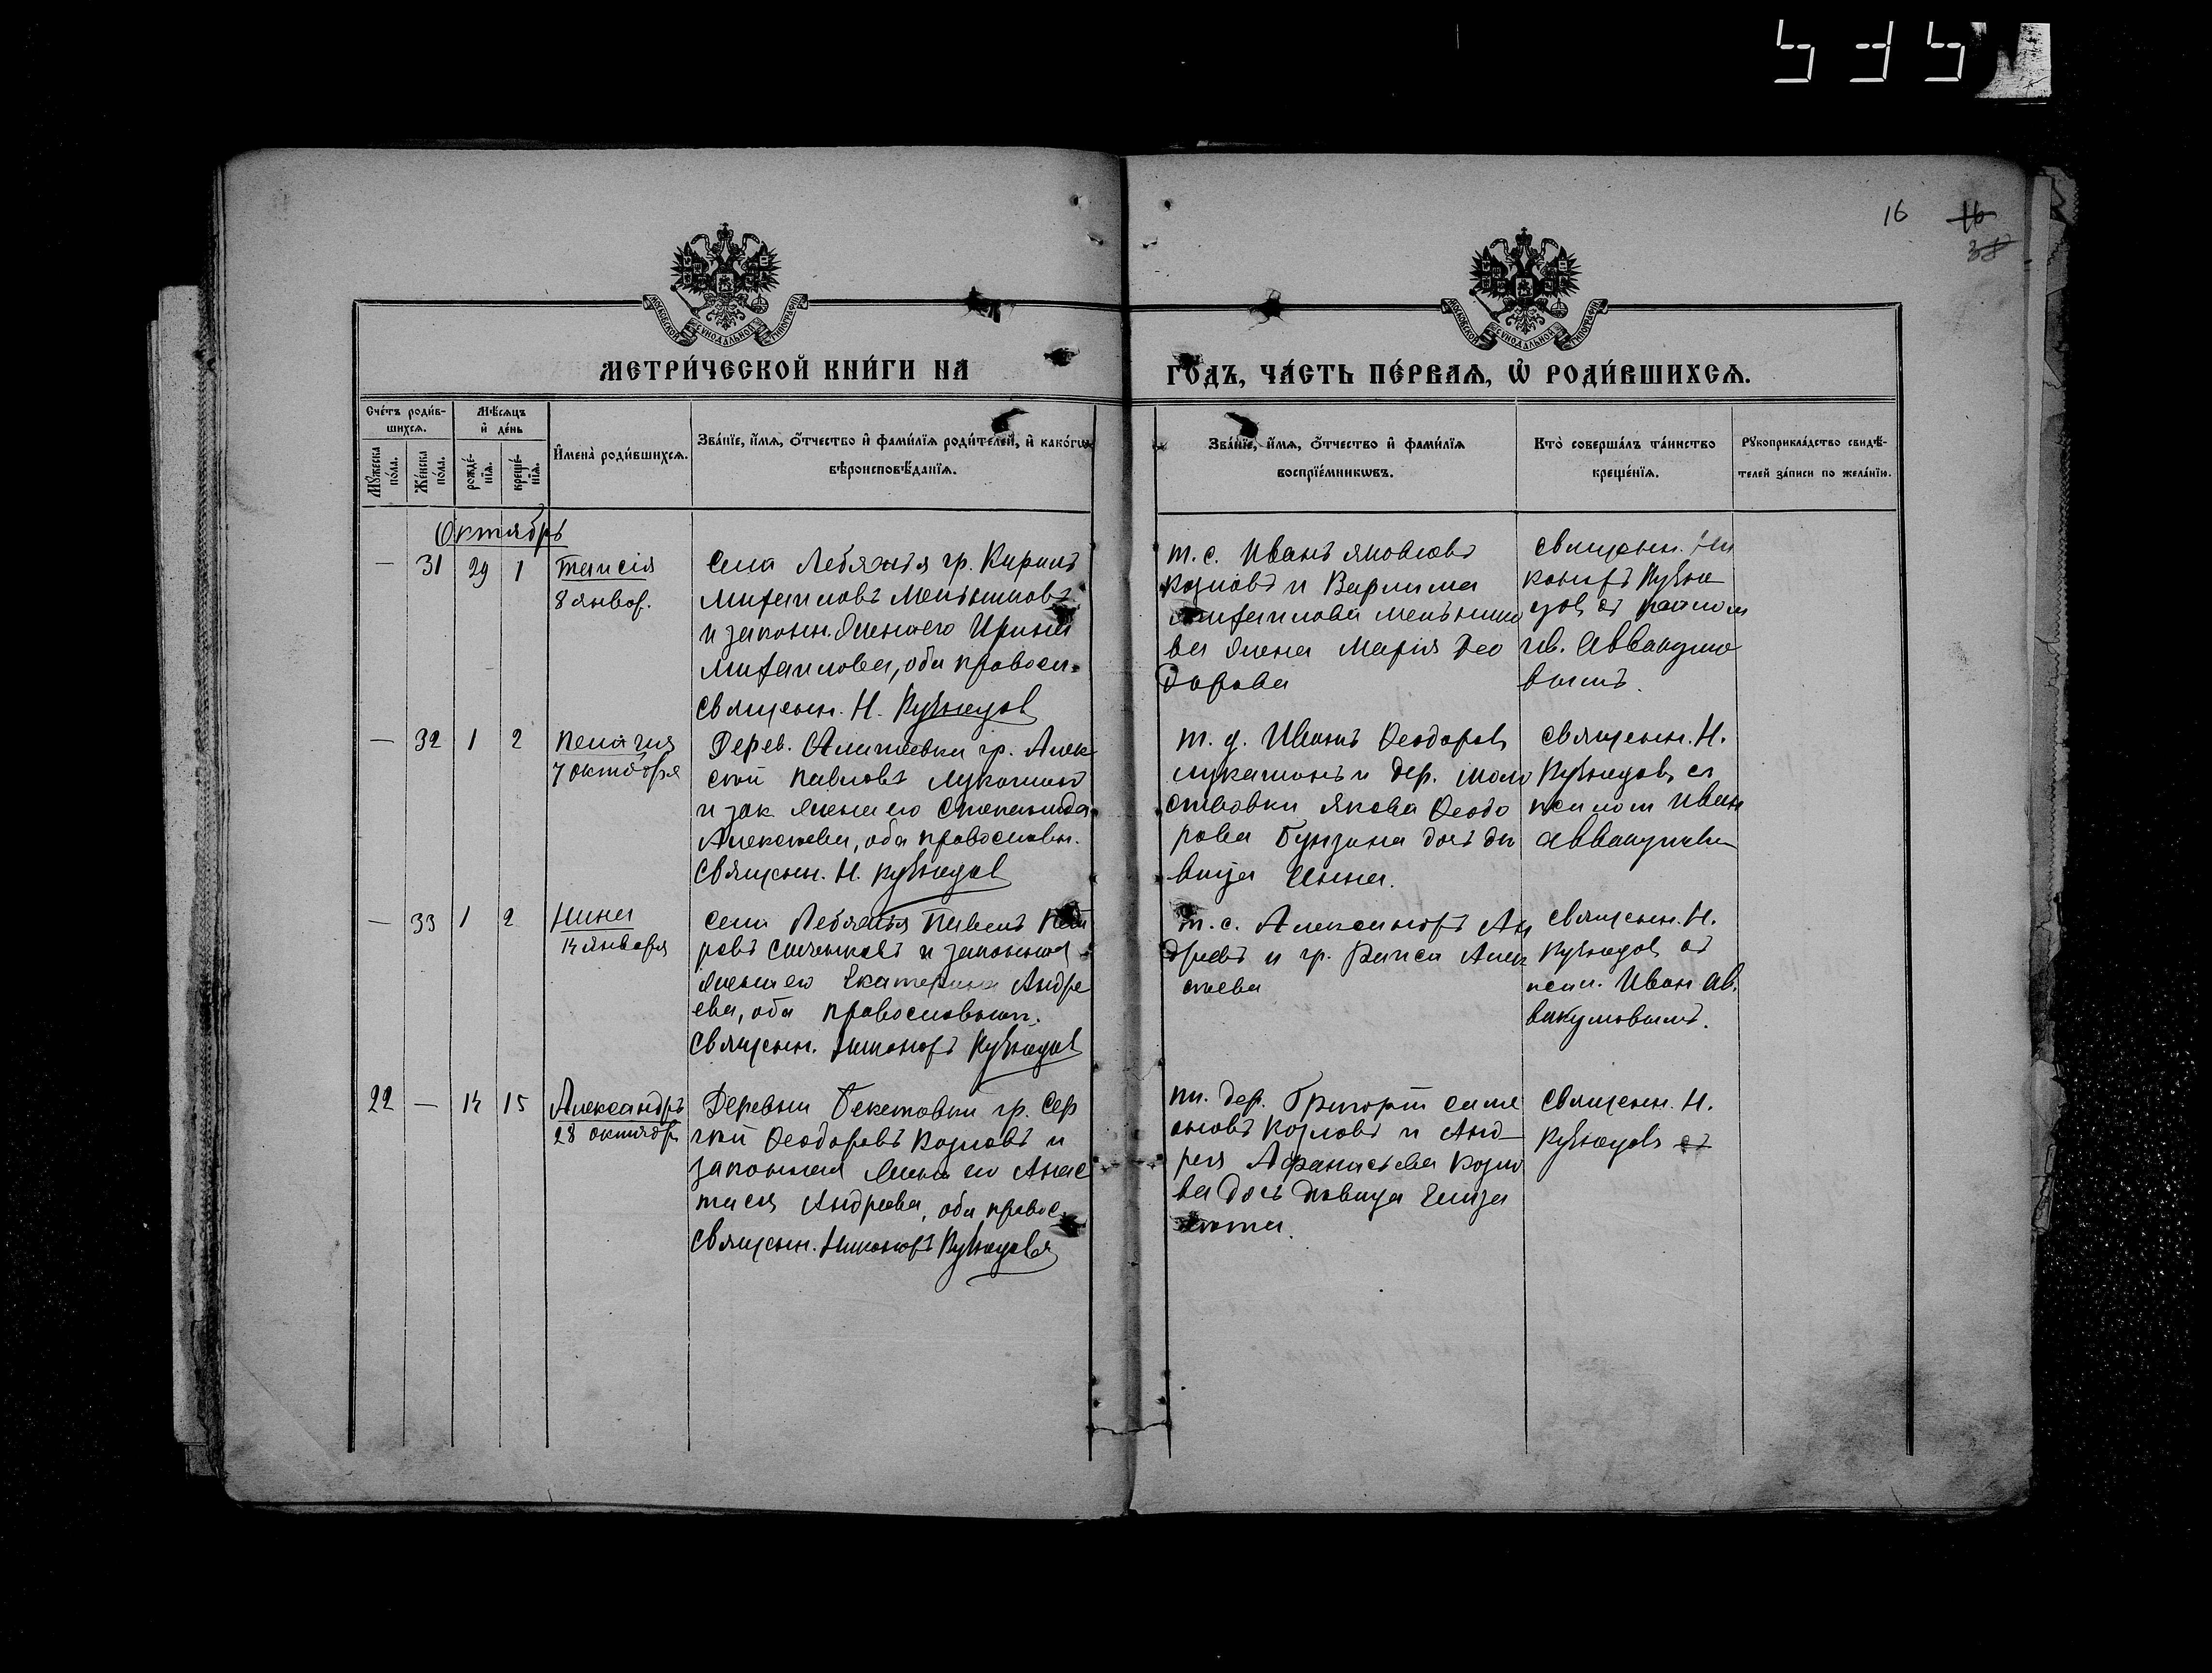 16 16
38
МОСКОВСКОЙ СѴНОДАЛЬНОЙ ТИПОГРАФІИ
МОСКОВСКОЙ СѴНОДАЛЬНОЙ ТИПОГРАФІИ
МЕТРИ́ЧЕСКОЙ КНИ́ГИ НА
ГО́ДЪ, ЧА́СТЬ ПЕ́РВАѦ, Ѽ РОДИ́ВШИХСѦ.
Сче́тъ роди́в-
шихсѧ.
Мꙋ́жеска
по́ла.
Же́нска
по́ла.
Мѣ́сѧцъ
и҆ де́нь
рожде́-
нїѧ.
креще́-
нїѧ.
И҆мена̀ роди́вшихсѧ.
Зва́нїе, и҆́мѧ, ѻ҆́тчество и҆ фами́лїѧ роди́телей, и҆ како́гѡ
вѣроисповѣ́данїѧ.
Зва́нїе, и҆́мѧ, ѻ҆́тчество и҆ фами́лїѧ
воспрїе́мникѡвъ.
Кто̀ соверша́лъ та́инство
креще́нїѧ.
Рꙋкоприкла́дство свидѣ́-
телей за́писи по жела́нїю.
Октябрь
— 31 29 1 Таисія
8 январ.
села Лебяжья гр. Кирилъ
Михаиловъ Меньшиковъ
и законн. жена его Ирина
Михаилова, оба правосл.
Священн. Н. Кузнецов
т. с. Иванъ Яковлевъ
Козловъ и
Михаилова Меньшико
ва жена Марія Фео
дорова
священн. Ни
каноръ Кузне
цов съ псалом
Ив. Аввакумо
вымъ.
— 32 1 2 Пелагия
7 октября
Дерев. гр. Алек
сей Павловъ Лукашинъ
и зак жена его Степанида
Алексеева, оба православн.
Священн. Н. Кузнецов
т. д. Иванъ Феодоров
Лукашинъ и дер.
Якова Феодо
рова дочь дѣ
вица Анна.
священн. Н.
Кузнецов съ
псалом Иван
Аввакумовы
— 33 1 2 Нина
14 января
села Лебяжья Павелъ Пет
ровъ и законная
жена его Екатерина Андре
ева, оба православныи.
Священн. Никаноръ Кузнецов
т. с. Александръ Ан
дреевъ и гр. Раиса Алек
сеева
священн. Н.
Кузнецов съ
псал. Иван Ав.
вакумовымъ.
22 — 14 15 Александръ
28 октябр
Деревни Бекетовки гр. Сер
гей Феодоровъ Козловъ и
законная жена его Анас
тасия Андреева, оба правос
Священн. Никаноръ Кузнецовъ
т. дер. Григорій Симе
оновъ Козловъ и Анд
рея Афанасьева Козло
ва дочь девица Елиза
вета.
священн. Н.
Кузнецовъ съ